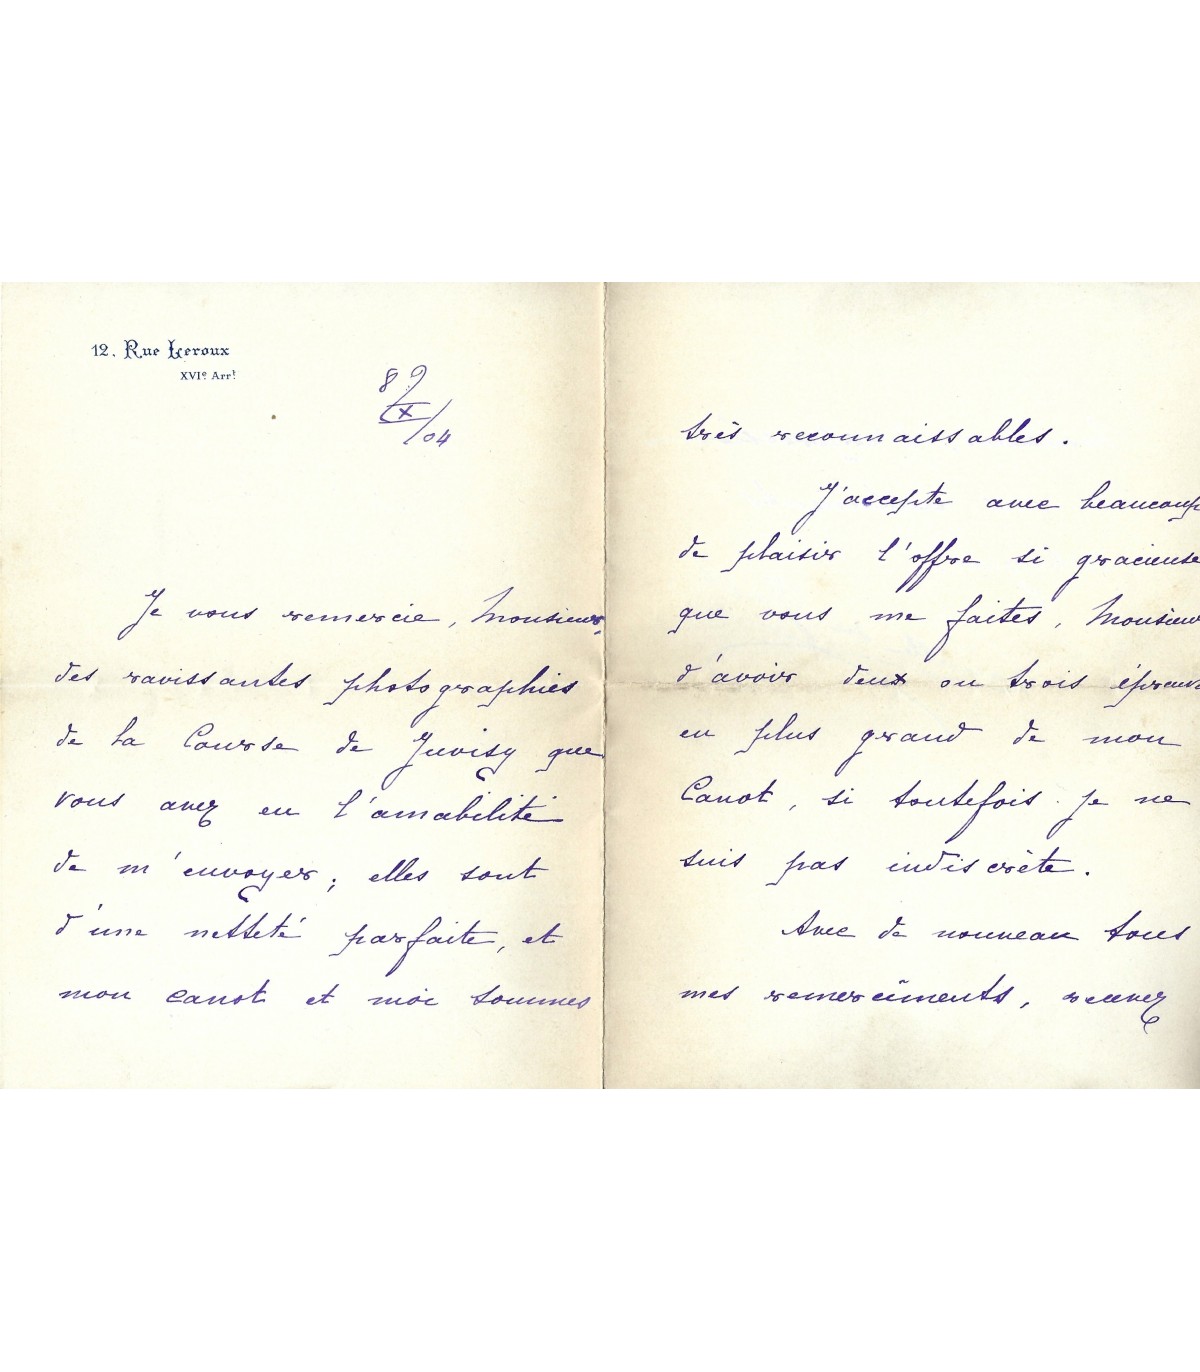 12. Rue Leroux
XVIe Arrt
X
/04
Je vous remercie, Monsieur,
des ravissantes photographies
de la Course de Juvisy que
vous avez eu l'amabilité
de m'envoyer; elles sont
d'une netteté parfaite, et
mon canot et moi sommes
très reconnaissables.
J'accepte avec beaucoup
de plaisir l'offre si gracieuse
que vous me faites, Monsieur
d'avoir deux ou trois épreuve
en plus grand de mon
Canot, si toutefois je ne
suis pas indiscrète.
Avec de nouveau tous
mes remerciments, recevez